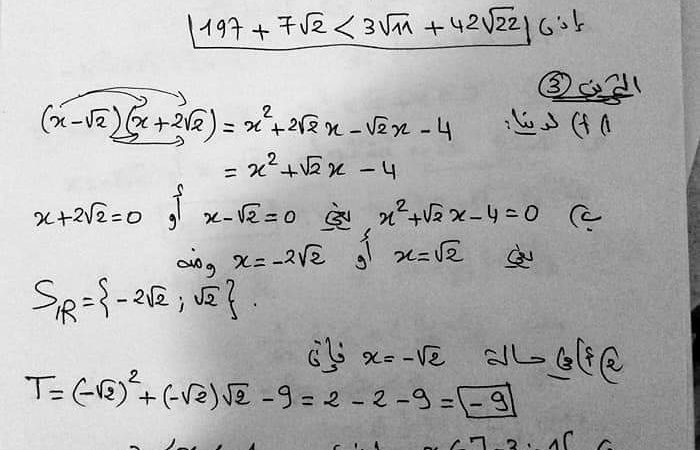 إذن 197 + 7√2 < 3√11 + 42√22
التمرين 3
1) أ) لدينا: (x-√2)(x+2√2) = x²+2√2x-√2x-4
= x²+√2x-4
ب) x²+√2x-4=0 يعني x-√2=0 أو x+2√2=0
يعني x=√2 أو x=-2√2 ومنه
S_IR={-2√2; √2}.
2) أ) في حالة x=-√2 فإن
T=(-√2)²+(-√2)√2-9=2-2-9=-9